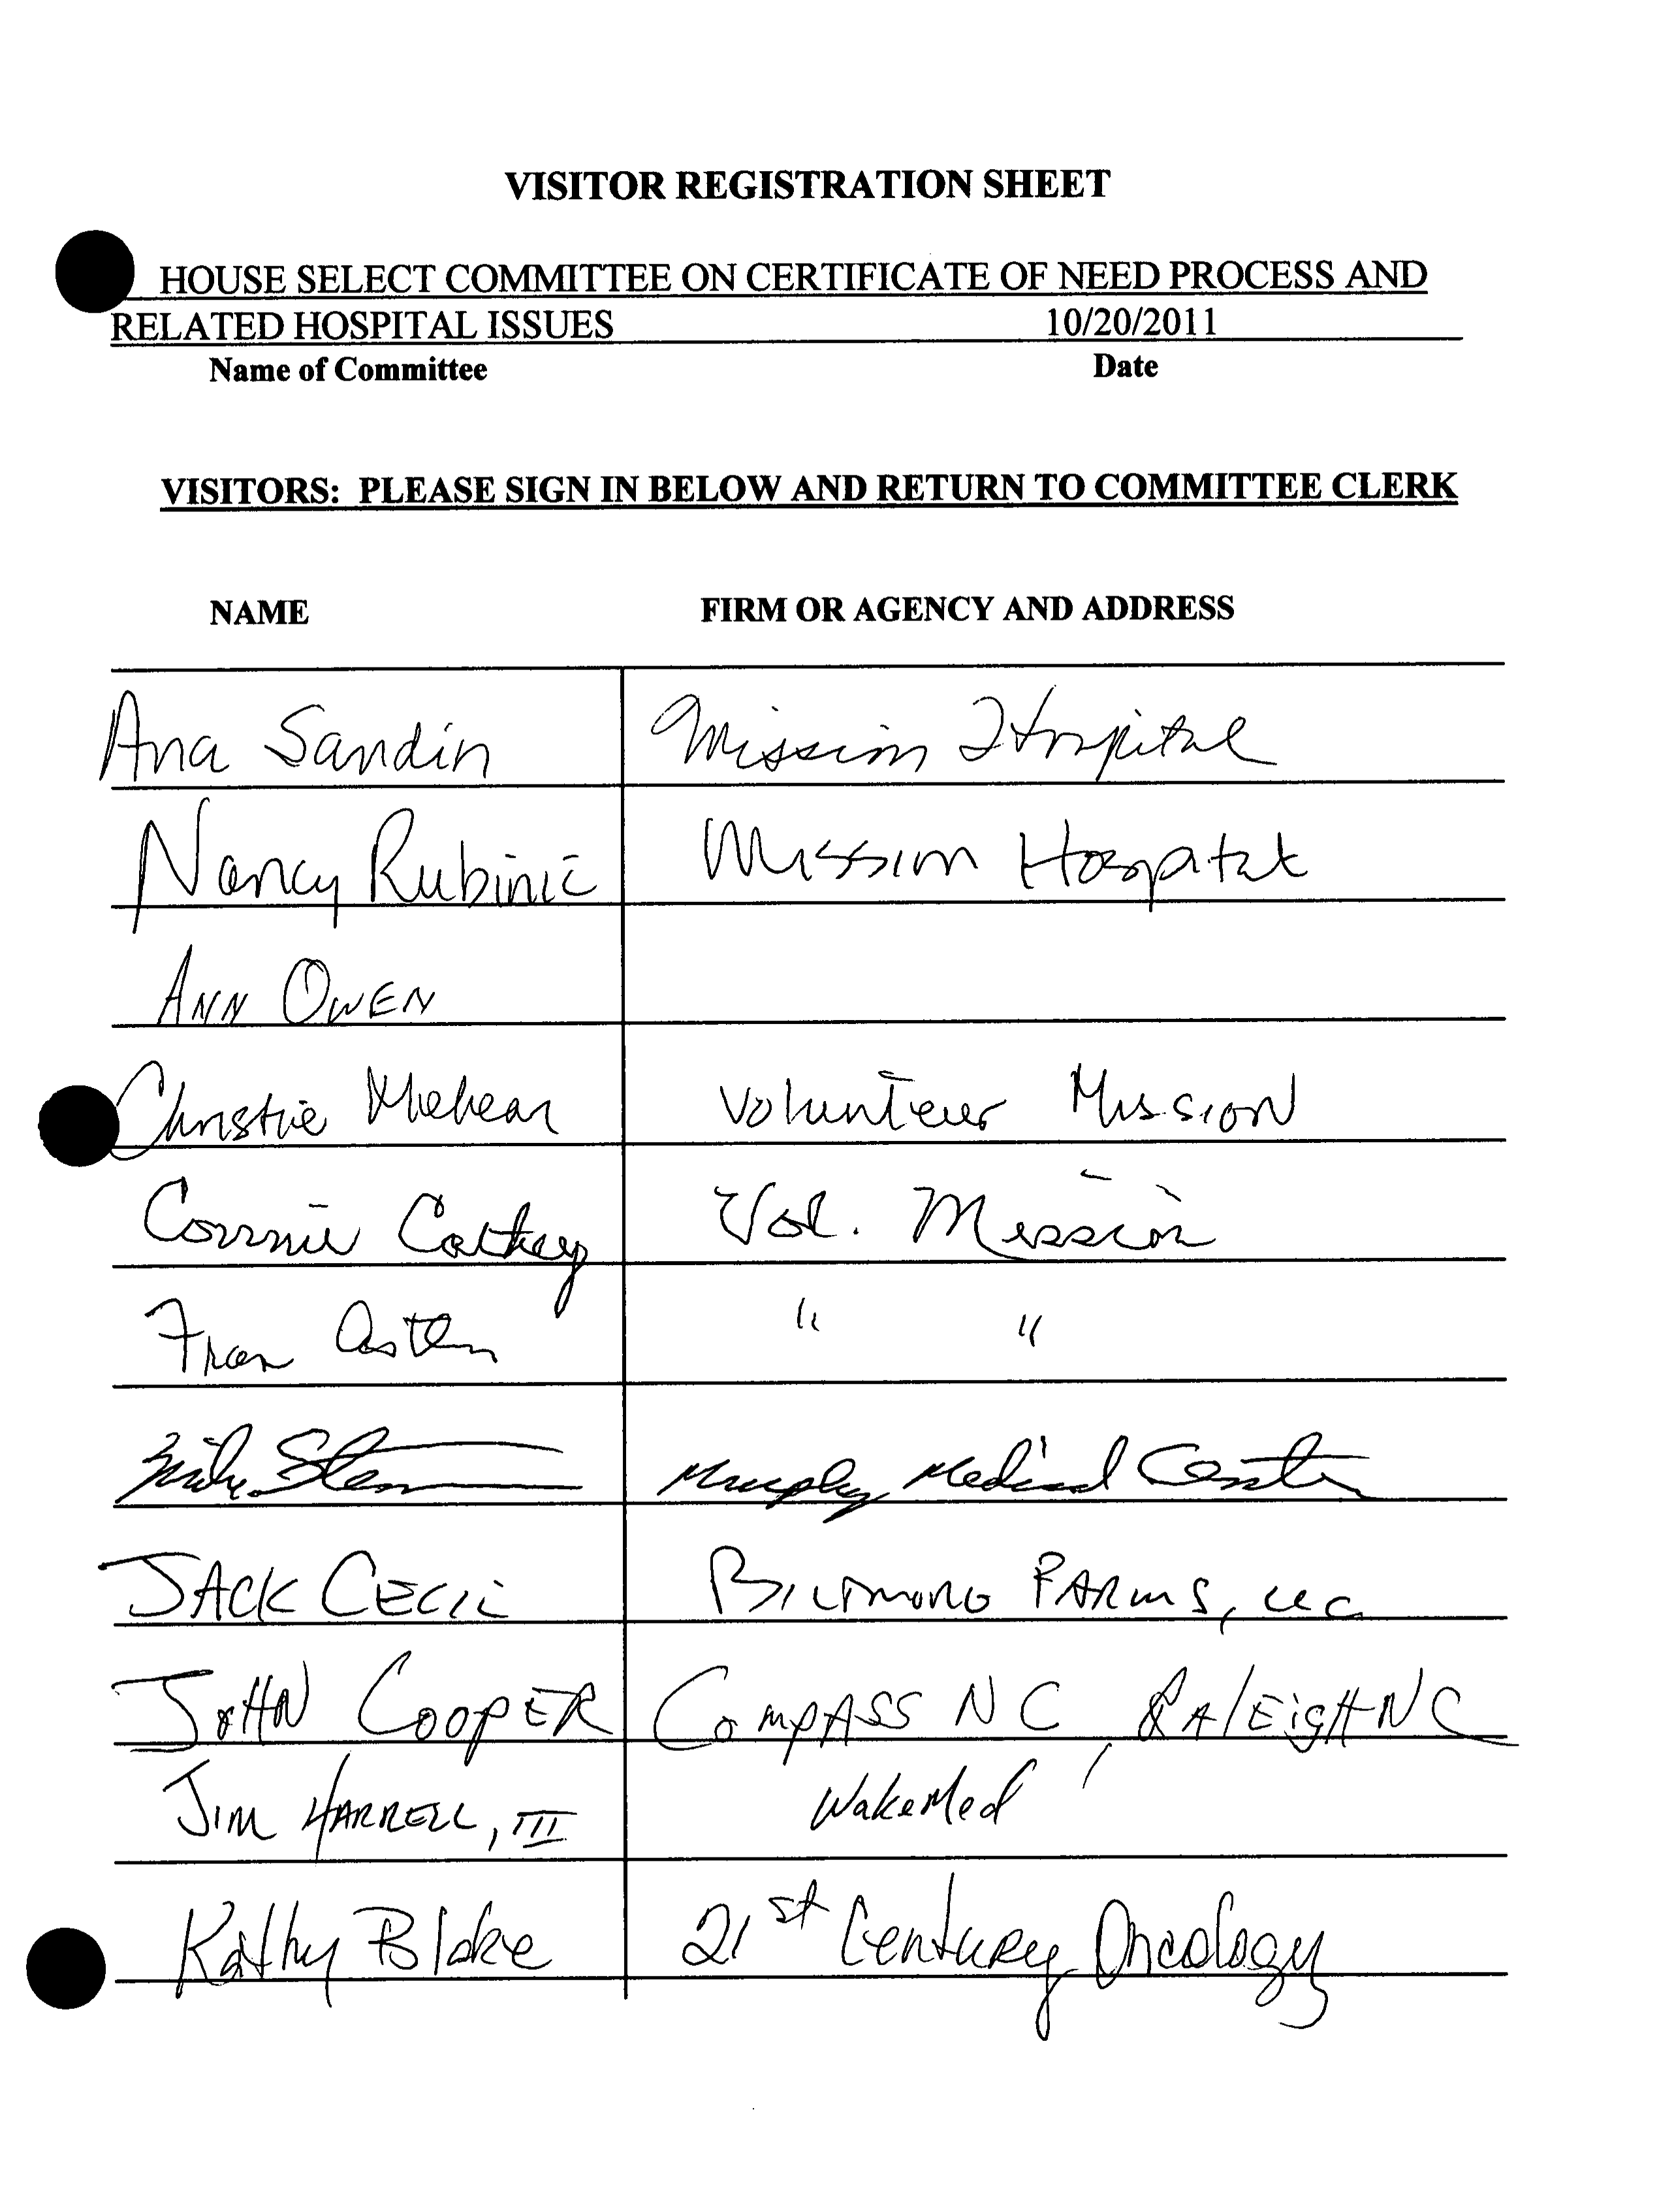 VISITOR REGISTRATION SHEET
HOUSE SELECT COMMITTEE ON CERTIFICATE OF NEED PROCESS AND
RELATED HOSPITAL ISSUES 10/20/2011
Name of Committee Date
VISITORS: PLEASE SIGN IN BELOW AND RETURN TO COMMITTEE CLERK
NAME FIRM OR AGENCY AND ADDRESS
Ana Sandin Mission Hospital
Nancy Mission Hospital
ANN OWEN
Christie Volunteer Mission
Connie Cathey Vol. Mission
Fran " "
Mike Murphy Medical Center
JACK CECIL BILTMORE FARMS, LLC
JOHN COOPER COMPASS NC, RALEIGH NC
JIM HARRELL, III WakeMed
Kathy Blake 21st Century Oncology